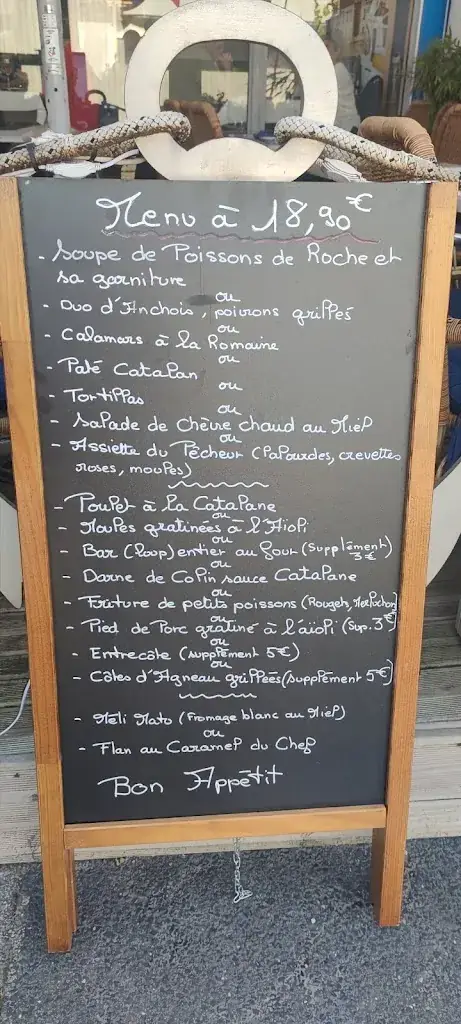 Menu à 18,90€
- Soupe de Poissons de Roche et
sa garniture
ou
- Duo d'Anchois, poivrons grillés
ou
- Calamars à la Romaine
ou
- Paté Catalan
ou
- Tortillas
ou
- Salade de Chèvre chaud au Miel
ou
- Assiette du Pécheur (Palourdes, crevettes
roses, moules)
- Poulet à la Catalane
ou
- Moules gratinées à l'Aïoli
ou
- Bar (loup) entier au four (Supplément
3€)
ou
- Darne de Colin sauce Catalane
ou
- Friture de petits poissons (Rougets, Merlochon)
ou
- Pied de Porc gratiné à l'aïoli (Sup. 3€)
ou
- Entrecôte (supplément 5€)
ou
- Côtes d'Agneau grillées (Supplément 5€)
- Méli Mato (Fromage blanc au Miel)
ou
- Flan au Caramel du Chef
Bon Appétit